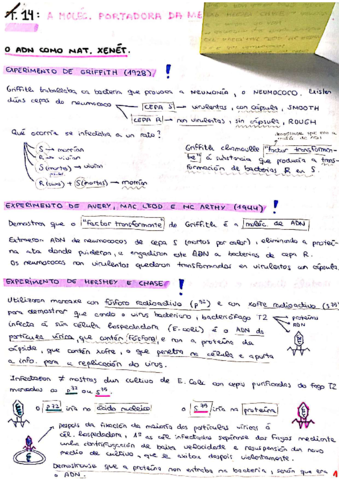 T.14: A MOLÉC. PORTADORA DA
O ADN COMO MAT. XENÉT.
EXPERIMENTO DE GRIFFITH (1928) !
Griffith traballaba co bacteria que provoca a NEUMONÍA, o NEUMOCOCO. Existen
dúas cepas do neumococo
CEPA S → virulentas, con cápsula, SMOOTH
CEPA R → non virulentas, sin cápsula, ROUGH
Qué ocorría se infectaba a un rato?
S → morrían
R → vivían
S (mortos) → vivían
R (vivas) + S (mortos) → morrían
Griffith chamoulle "factor transforman-
te" á substancia que producía a trans-
formación de bacterias R en S.
EXPERIMENTO DE AVERY, MAC LEOD E MC ARTHY (1944) !
Demostra que o "factor transformante" de Griffith é a moléc. de ADN
Extraeron ADN de neumococos de cepa S (mortos por calor), eliminando a proteí-
na ata donde puideron, e engadiron este ADN a bacterias de cepa R.
Os neumococos non virulentos quedaron transformados en virulentos con cápsula.
EXPERIMENTO DE HERSHEY E CHASE !
Utilizaron marcaxe con fósforo radioactivo (P32) e con xofre radioactivo (S35)
para demostrar que cando o virus bacteriano, bacteriófago T2
infecta á súa célula hospedadora (E. coli) é o ADN da
partícula vírica, que contén fósforo, e non a proteína da
cápsida, que contén xofre, o que penetra na célula e aporta
a info. para a replicación do virus.
proteína
ADN
Infectaron ≠ mostras dun cultivo de E. Coli con cepas purificadas do fago T2
marcadas con P32 ou S35.
O P32 iría no ácido nucleico
O S35 iría na proteína
Despois da fixación da maioría das partículas víricas á
cél. hospedadora, as cél. infectadas sepáranse dos fagos mediante
unha centrifugación de baixa velocidade e resuspensión do novo
medio de cultivo, que se axitan despois violentamente.
Demostrouse que a proteína non entraba na bacteria, senón que era
o ADN.